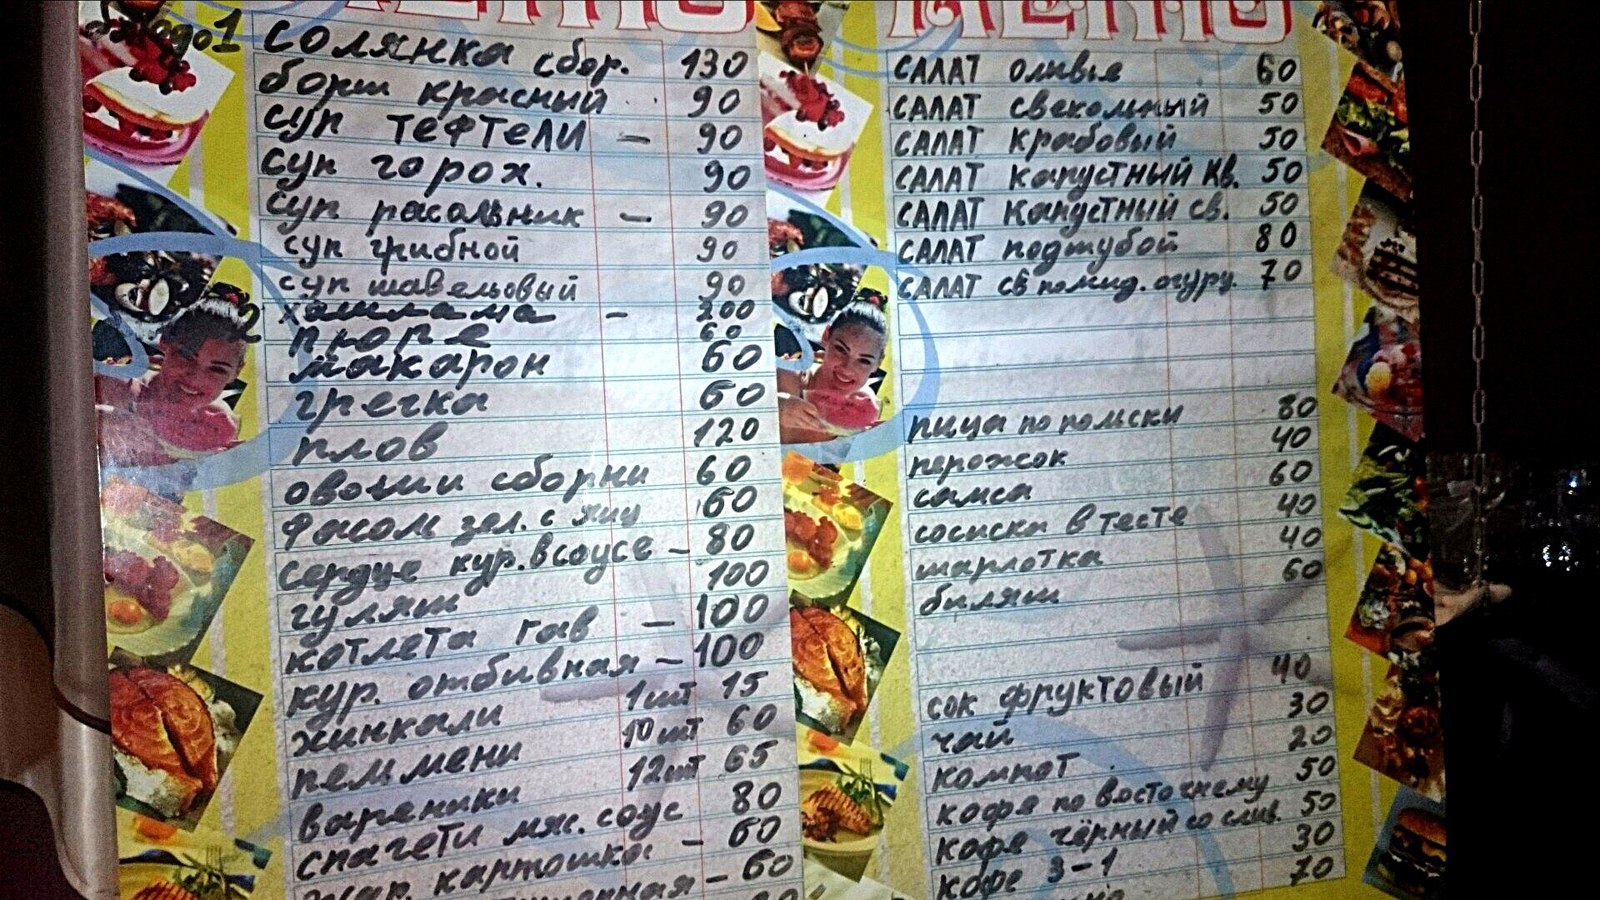 МЕНЮ
1 СОЛЯНКА сбор. 130
борщ красный 90
суп ТЕФТЕЛИ - 90
суп горох. 90
суп расольник - 90
суп грибной 90
суп щавельовый 90
2 хашлама - 200
пюре 60
макарон 60
гречка 60
плов 120
овощи сборни 60
фасоль зел. с яиц 60
сердце кур. в соусе - 80
гуляш 100
котлета гав - 100
кур. отбивная - 100
хинкали 1шт 15
пельмени 10шт 60
вареники 12шт 65
спагети мяс. соус 80
жар. картошка - 60
- 60
МЕНЮ
САЛАТ оливье 60
САЛАТ свекольный 50
САЛАТ крабовый 50
САЛАТ капустный кв. 50
САЛАТ капустный св. 50
САЛАТ подшубой 80
САЛАТ св помид. огурц. 70
пица по польски 80
перожок 40
самса 60
сосиски в тесте 40
шарлотка 40
биляш 60
сок фруктовый 40
чай 30
компот 20
кофе по восточнему 50
кофе чёрный со слив. 50
кофе 3-1 30
70